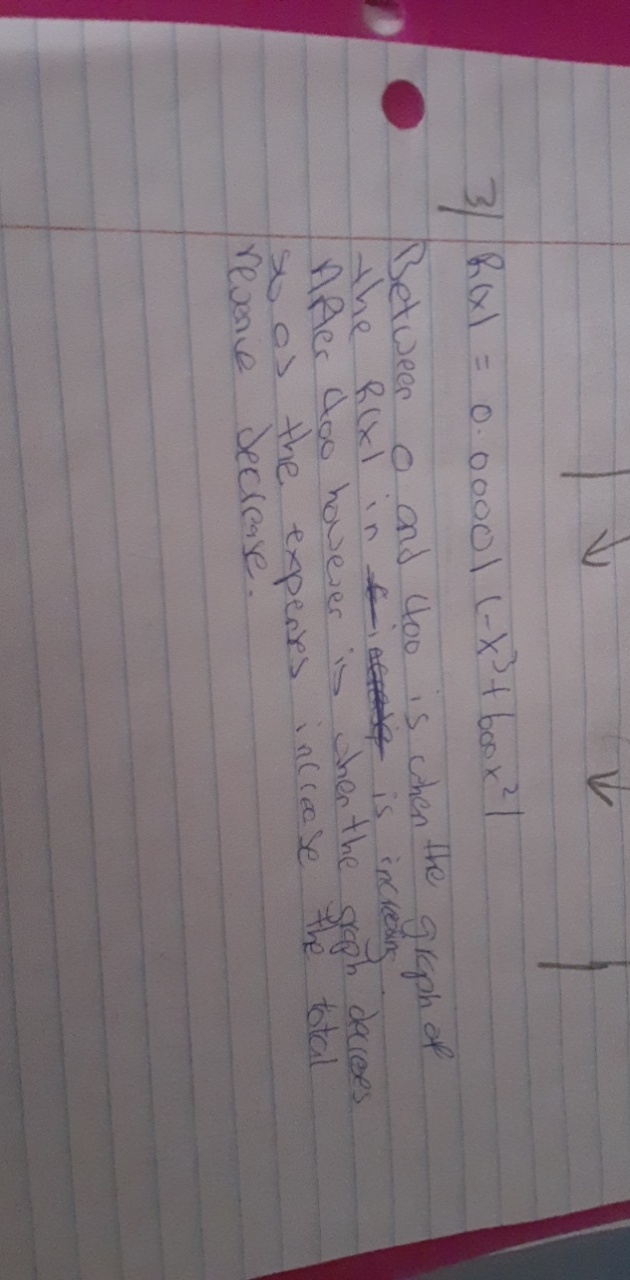 3) R(x) = 0.00001 (-x³ + 600x²)
Between 0 and 400 is when the graph of
the R(x) in is increasing.
After 400 however is when the graph decreses
so as the expenses increase the total
revenue decrease.